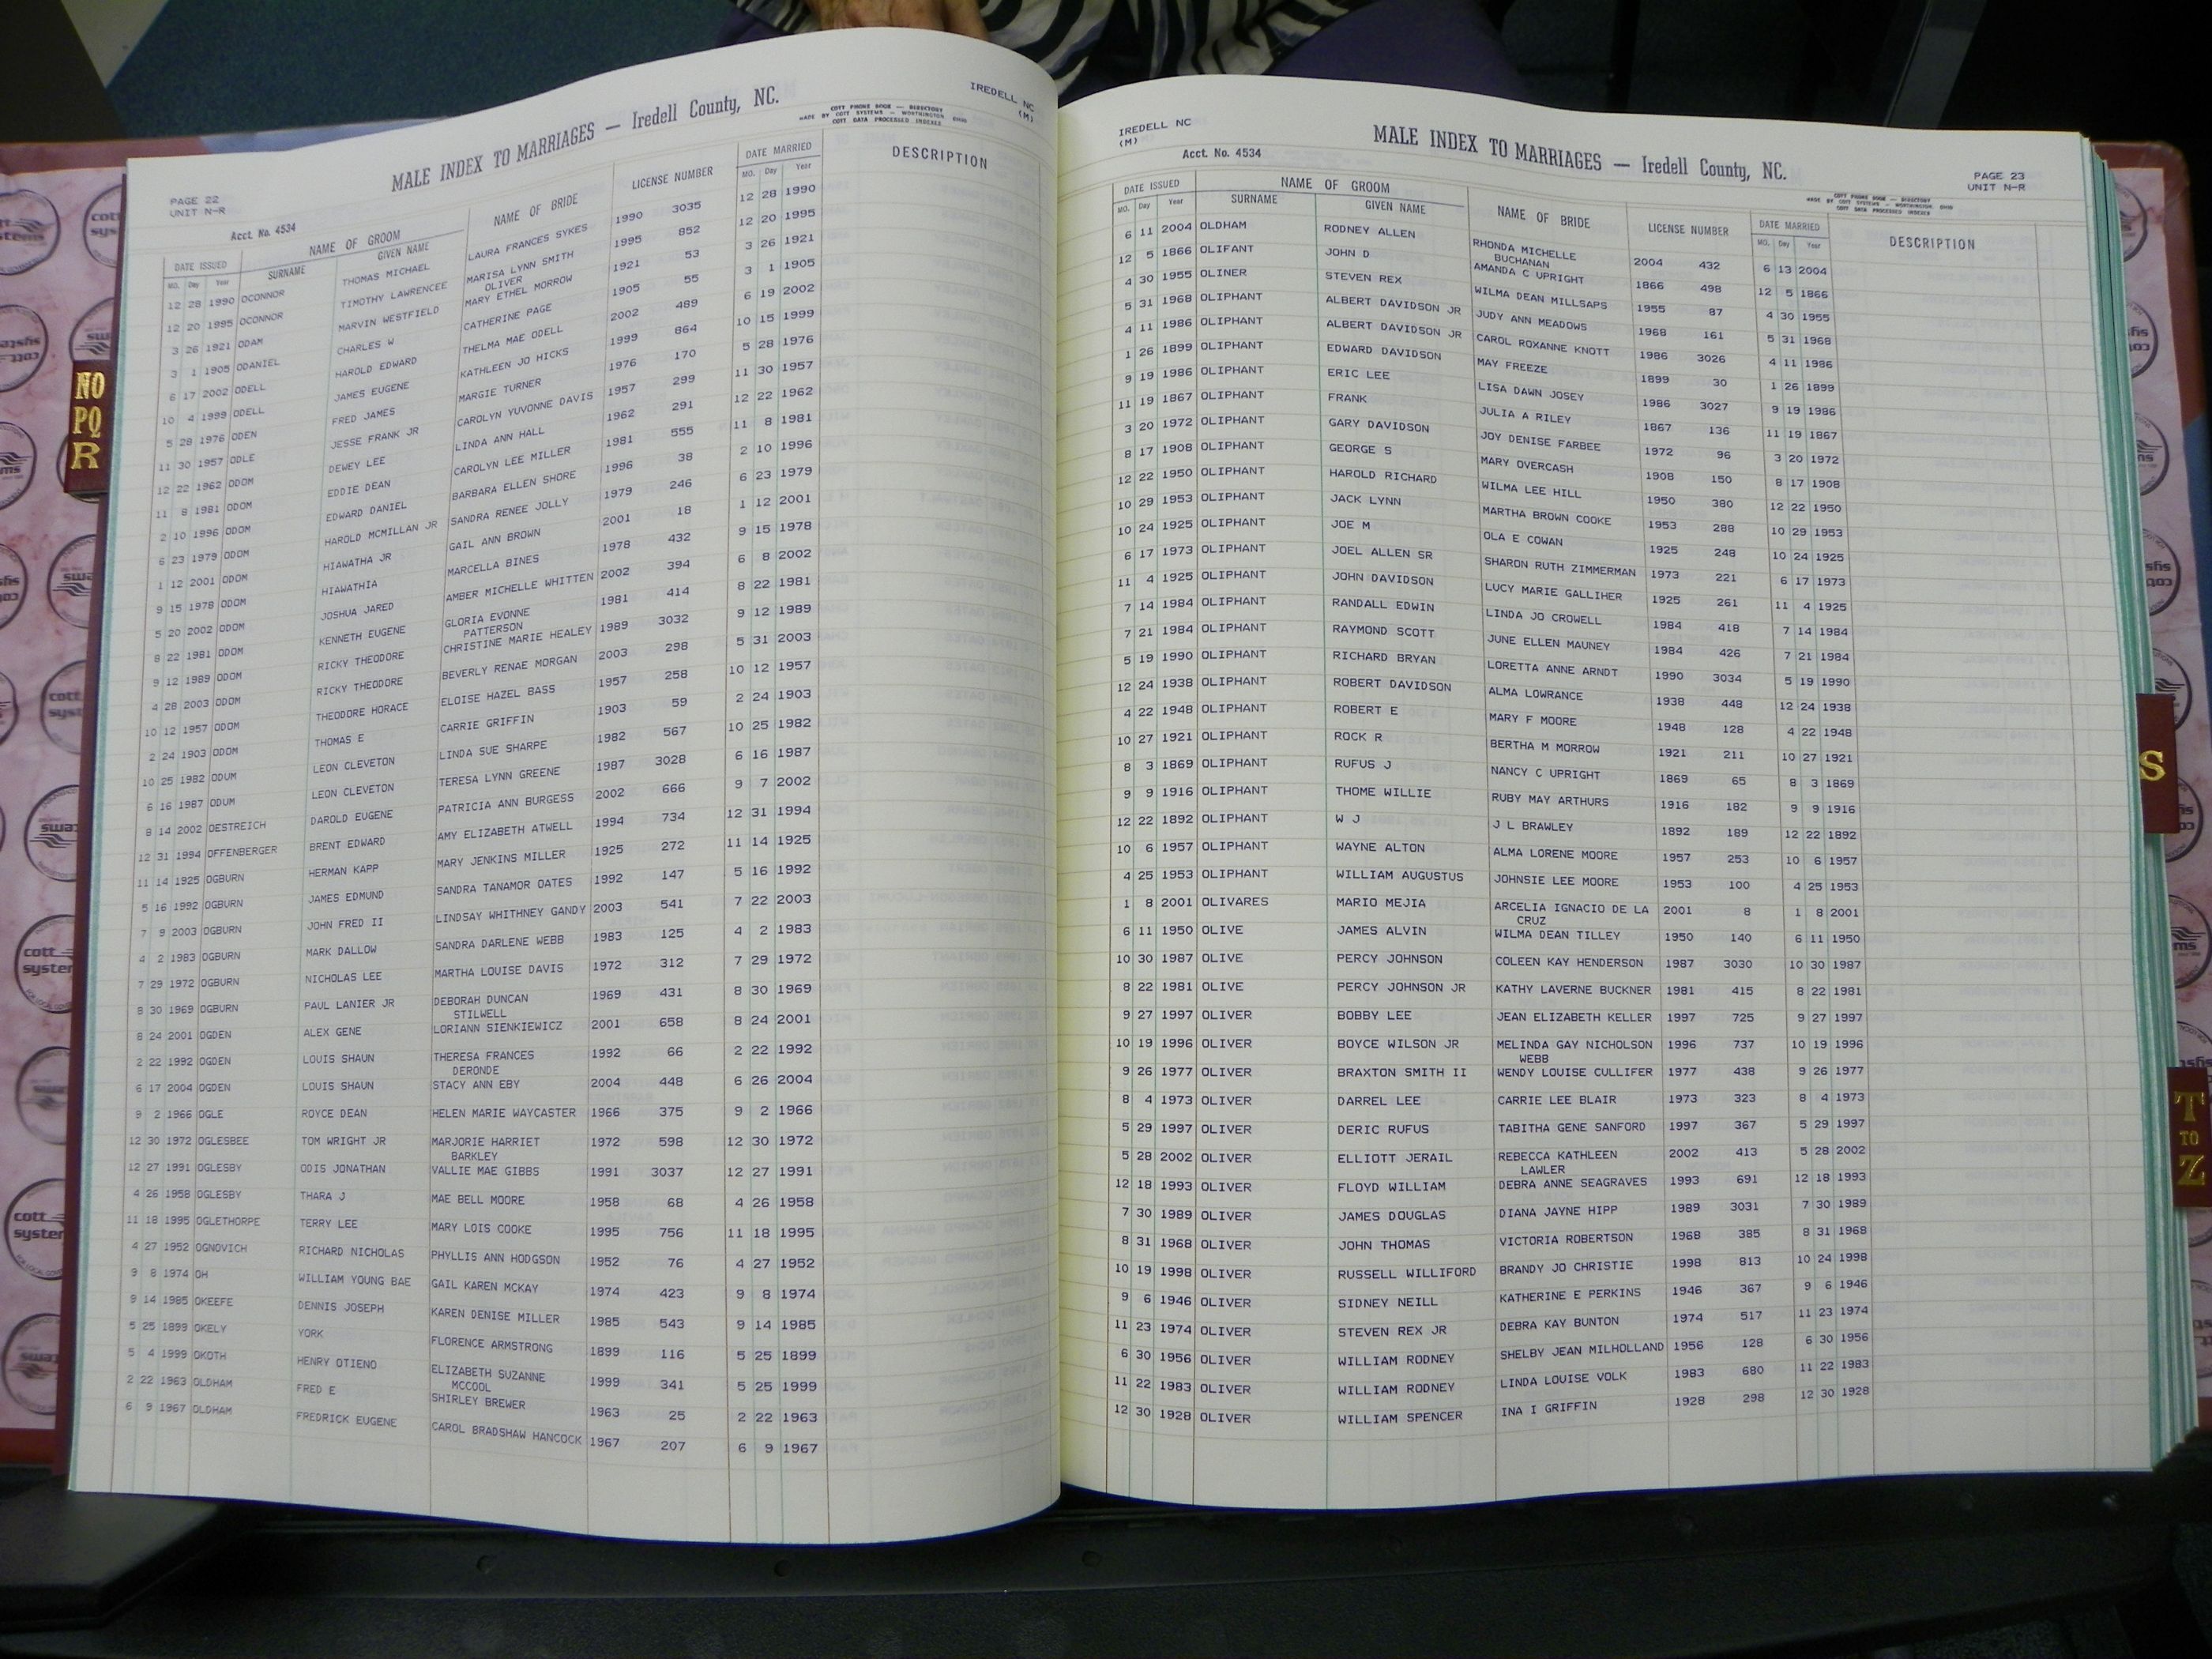 IREDELL NC
(M)
MALE INDEX TO MARRIAGES — Iredell County, NC.
COTT PHONE BOOK — DIRECTORY
MADE BY COTT SYSTEMS — WORTHINGTON OHIO
COTT DATA PROCESSED INDEXES
PAGE 22
UNIT N-R
Acct. No. 4534
DATE ISSUED NAME OF GROOM NAME OF BRIDE LICENSE NUMBER DATE MARRIED DESCRIPTION
MO. Day Year SURNAME GIVEN NAME MO. Day Year
12 28 1990 OCONNOR THOMAS MICHAEL LAURA FRANCES SYKES 1990 3035 12 28 1990
12 20 1995 OCONNOR TIMOTHY LAWRENCEE MARISA LYNN SMITH 1995 852 12 20 1995
OLIVER
3 26 1921 ODAM MARVIN WESTFIELD MARY ETHEL MORROW 1921 53 3 26 1921
3 1 1905 ODANIEL CHARLES W CATHERINE PAGE 1905 55 3 1 1905
6 17 2002 ODELL HAROLD EDWARD THELMA MAE ODELL 2002 489 6 19 2002
10 4 1999 ODELL JAMES EUGENE KATHLEEN JO HICKS 1999 864 10 15 1999
5 28 1976 ODEN FRED JAMES MARGIE TURNER 1976 170 5 28 1976
11 30 1957 ODLE JESSE FRANK JR CAROLYN YUVONNE DAVIS 1957 299 11 30 1957
12 22 1962 ODOM DEWEY LEE LINDA ANN HALL 1962 291 12 22 1962
11 8 1981 ODOM EDDIE DEAN CAROLYN LEE MILLER 1981 555 11 8 1981
2 10 1996 ODOM EDWARD DANIEL BARBARA ELLEN SHORE 1996 38 2 10 1996
6 23 1979 ODOM HAROLD MCMILLAN JR SANDRA RENEE JOLLY 1979 246 6 23 1979
1 12 2001 ODOM HIAWATHA JR GAIL ANN BROWN 2001 18 1 12 2001
9 15 1978 ODOM HIAWATHIA MARCELLA BINES 1978 432 9 15 1978
5 20 2002 ODOM JOSHUA JARED AMBER MICHELLE WHITTEN 2002 394 6 8 2002
8 22 1981 ODOM KENNETH EUGENE GLORIA EVONNE 1981 414 8 22 1981
PATTERSON
9 12 1989 ODOM RICKY THEODORE CHRISTINE MARIE HEALEY 1989 3032 9 12 1989
4 28 2003 ODOM RICKY THEODORE BEVERLY RENAE MORGAN 2003 298 5 31 2003
10 12 1957 ODOM THEODORE HORACE ELOISE HAZEL BASS 1957 258 10 12 1957
2 24 1903 ODOM THOMAS E CARRIE GRIFFIN 1903 59 2 24 1903
10 25 1982 ODUM LEON CLEVETON LINDA SUE SHARPE 1982 567 10 25 1982
6 16 1987 ODUM LEON CLEVETON TERESA LYNN GREENE 1987 3028 6 16 1987
8 14 2002 OESTREICH DAROLD EUGENE PATRICIA ANN BURGESS 2002 666 9 7 2002
12 31 1994 OFFENBERGER BRENT EDWARD AMY ELIZABETH ATWELL 1994 734 12 31 1994
11 14 1925 OGBURN HERMAN KAPP MARY JENKINS MILLER 1925 272 11 14 1925
5 16 1992 OGBURN JAMES EDMUND SANDRA TANAMOR OATES 1992 147 5 16 1992
7 9 2003 OGBURN JOHN FRED II LINDSAY WHITHNEY GANDY 2003 541 7 22 2003
4 2 1983 OGBURN MARK DALLOW SANDRA DARLENE WEBB 1983 125 4 2 1983
7 29 1972 OGBURN NICHOLAS LEE MARTHA LOUISE DAVIS 1972 312 7 29 1972
8 30 1969 OGBURN PAUL LANIER JR DEBORAH DUNCAN 1969 431 8 30 1969
STILWELL
8 24 2001 OGDEN ALEX GENE LORIANN SIENKIEWICZ 2001 658 8 24 2001
2 22 1992 OGDEN LOUIS SHAUN THERESA FRANCES 1992 66 2 22 1992
DERONDE
6 17 2004 OGDEN LOUIS SHAUN STACY ANN EBY 2004 448 6 26 2004
9 2 1966 OGLE ROYCE DEAN HELEN MARIE WAYCASTER 1966 375 9 2 1966
12 30 1972 OGLESBEE TOM WRIGHT JR MARJORIE HARRIET 1972 598 12 30 1972
BARKLEY
12 27 1991 OGLESBY ODIS JONATHAN VALLIE MAE GIBBS 1991 3037 12 27 1991
4 26 1958 OGLESBY THARA J MAE BELL MOORE 1958 68 4 26 1958
11 18 1995 OGLETHORPE TERRY LEE MARY LOIS COOKE 1995 756 11 18 1995
4 27 1952 OGNOVICH RICHARD NICHOLAS PHYLLIS ANN HODGSON 1952 76 4 27 1952
9 8 1974 OH WILLIAM YOUNG BAE GAIL KAREN MCKAY 1974 423 9 8 1974
9 14 1985 OKEEFE DENNIS JOSEPH KAREN DENISE MILLER 1985 543 9 14 1985
5 25 1899 OKELY YORK FLORENCE ARMSTRONG 1899 116 5 25 1899
5 4 1999 OKOTH HENRY OTIENO ELIZABETH SUZANNE 1999 341 5 25 1999
MCCOOL
2 22 1963 OLDHAM FRED E SHIRLEY BREWER 1963 25 2 22 1963
6 9 1967 OLDHAM FREDRICK EUGENE CAROL BRADSHAW HANCOCK 1967 207 6 9 1967
NO
PQ
R
IREDELL NC
(M)
MALE INDEX TO MARRIAGES — Iredell County, NC.
Acct. No. 4534
PAGE 23
UNIT N-R
COTT PHONE BOOK — DIRECTORY
MADE BY COTT SYSTEMS — WORTHINGTON OHIO
COTT DATA PROCESSED INDEXES
DATE ISSUED NAME OF GROOM NAME OF BRIDE LICENSE NUMBER DATE MARRIED DESCRIPTION
MO. Day Year SURNAME GIVEN NAME MO. Day Year
6 11 2004 OLDHAM RODNEY ALLEN RHONDA MICHELLE 2004 432 6 13 2004
BUCHANAN
12 5 1866 OLIFANT JOHN D AMANDA C UPRIGHT 1866 498 12 5 1866
4 30 1955 OLINER STEVEN REX WILMA DEAN MILLSAPS 1955 87 4 30 1955
5 31 1968 OLIPHANT ALBERT DAVIDSON JR JUDY ANN MEADOWS 1968 161 5 31 1968
4 11 1986 OLIPHANT ALBERT DAVIDSON JR CAROL ROXANNE KNOTT 1986 3026 4 11 1986
1 26 1899 OLIPHANT EDWARD DAVIDSON MAY FREEZE 1899 30 1 26 1899
9 19 1986 OLIPHANT ERIC LEE LISA DAWN JOSEY 1986 3027 9 19 1986
11 19 1867 OLIPHANT FRANK JULIA A RILEY 1867 136 11 19 1867
3 20 1972 OLIPHANT GARY DAVIDSON JOY DENISE FARBEE 1972 96 3 20 1972
8 17 1908 OLIPHANT GEORGE S MARY OVERCASH 1908 150 8 17 1908
12 22 1950 OLIPHANT HAROLD RICHARD WILMA LEE HILL 1950 380 12 22 1950
10 29 1953 OLIPHANT JACK LYNN MARTHA BROWN COOKE 1953 288 10 29 1953
10 24 1925 OLIPHANT JOE M OLA E COWAN 1925 248 10 24 1925
6 17 1973 OLIPHANT JOEL ALLEN SR SHARON RUTH ZIMMERMAN 1973 221 6 17 1973
11 4 1925 OLIPHANT JOHN DAVIDSON LUCY MARIE GALLIHER 1925 261 11 4 1925
7 14 1984 OLIPHANT RANDALL EDWIN LINDA JO CROWELL 1984 418 7 14 1984
7 21 1984 OLIPHANT RAYMOND SCOTT JUNE ELLEN MAUNEY 1984 426 7 21 1984
5 19 1990 OLIPHANT RICHARD BRYAN LORETTA ANNE ARNDT 1990 3034 5 19 1990
12 24 1938 OLIPHANT ROBERT DAVIDSON ALMA LOWRANCE 1938 448 12 24 1938
4 22 1948 OLIPHANT ROBERT E MARY F MOORE 1948 128 4 22 1948
10 27 1921 OLIPHANT ROCK R BERTHA M MORROW 1921 211 10 27 1921
8 3 1869 OLIPHANT RUFUS J NANCY C UPRIGHT 1869 65 8 3 1869
9 9 1916 OLIPHANT THOME WILLIE RUBY MAY ARTHURS 1916 182 9 9 1916
12 22 1892 OLIPHANT W J J L BRAWLEY 1892 189 12 22 1892
10 6 1957 OLIPHANT WAYNE ALTON ALMA LORENE MOORE 1957 253 10 6 1957
4 25 1953 OLIPHANT WILLIAM AUGUSTUS JOHNSIE LEE MOORE 1953 100 4 25 1953
1 8 2001 OLIVARES MARIO MEJIA ARCELIA IGNACIO DE LA 2001 8 1 8 2001
CRUZ
6 11 1950 OLIVE JAMES ALVIN WILMA DEAN TILLEY 1950 140 6 11 1950
10 30 1987 OLIVE PERCY JOHNSON COLEEN KAY HENDERSON 1987 3030 10 30 1987
8 22 1981 OLIVE PERCY JOHNSON JR KATHY LAVERNE BUCKNER 1981 415 8 22 1981
9 27 1997 OLIVER BOBBY LEE JEAN ELIZABETH KELLER 1997 725 9 27 1997
10 19 1996 OLIVER BOYCE WILSON JR MELINDA GAY NICHOLSON 1996 737 10 19 1996
WEBB
9 26 1977 OLIVER BRAXTON SMITH II WENDY LOUISE CULLIFER 1977 438 9 26 1977
8 4 1973 OLIVER DARREL LEE CARRIE LEE BLAIR 1973 323 8 4 1973
5 29 1997 OLIVER DERIC RUFUS TABITHA GENE SANFORD 1997 367 5 29 1997
5 28 2002 OLIVER ELLIOTT JERAIL REBECCA KATHLEEN 2002 413 5 28 2002
LAWLER
12 18 1993 OLIVER FLOYD WILLIAM DEBRA ANNE SEAGRAVES 1993 691 12 18 1993
7 30 1989 OLIVER JAMES DOUGLAS DIANA JAYNE HIPP 1989 3031 7 30 1989
8 31 1968 OLIVER JOHN THOMAS VICTORIA ROBERTSON 1968 385 8 31 1968
10 19 1998 OLIVER RUSSELL WILLIFORD BRANDY JO CHRISTIE 1998 813 10 24 1998
9 6 1946 OLIVER SIDNEY NEILL KATHERINE E PERKINS 1946 367 9 6 1946
11 23 1974 OLIVER STEVEN REX JR DEBRA KAY BUNTON 1974 517 11 23 1974
6 30 1956 OLIVER WILLIAM RODNEY SHELBY JEAN MILHOLLAND 1956 128 6 30 1956
11 22 1983 OLIVER WILLIAM RODNEY LINDA LOUISE VOLK 1983 680 11 22 1983
12 30 1928 OLIVER WILLIAM SPENCER INA I GRIFFIN 1928 298 12 30 1928
S
T
TO
Z
cott
systems